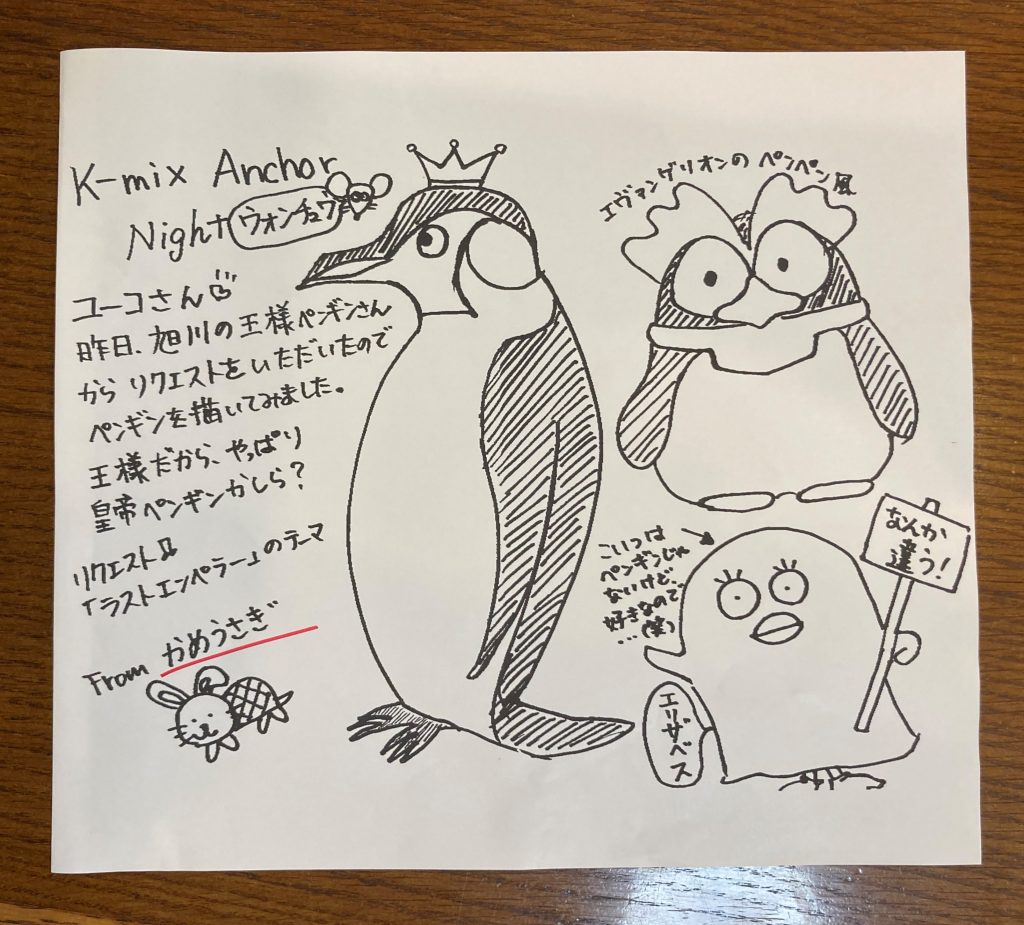 K-mix Anchor
Night ウォンチュウ
ユーコさん
昨日、旭川の王様ペンギンさん
からリクエストをいただいたので
ペンギンを描いてみました。
王様だから、やっぱり
皇帝ペンギンかしら?
リクエスト
「ラストエンペラー」のテーマ
From かめうさぎ
エヴァンゲリオンの ペンペン風
こいつは
ペンギンじゃ
ないけど
好きなので
…(笑)
なんか
違う!
エリザベス